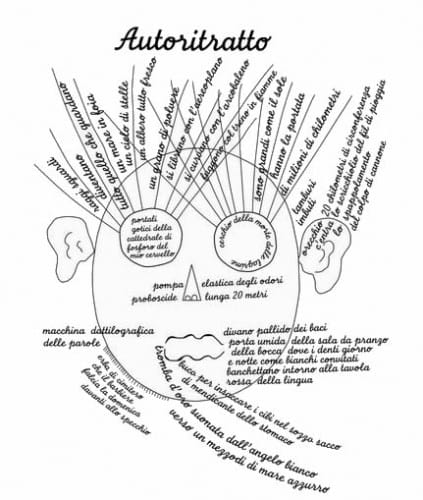 Autoritratto
raggi sguardi
diventano
tutto quello che guardano
un mare in foia
un cielo di stelle
un albero tutto fresco
un grano di polvere
si librano con l'aereoplano
si curvano con l'arcobaleno
fuggono col treno in fiamme
sono grandi come il sole
hanno la portata
di milioni di chilometri
tamburi
imbuti
orecchio 20 chilometri di circonferenza
c'entra lo scricchiolio del fil di pioggia
lo spappolamento
del colpo di cannone
portali
gotici della
cattedrale di
fosforo del
mio cervello
cerchio della morte delle lagrime
pompa elastica degli odori
proboscide lunga 20 metri
macchina dattilografica
delle parole
divano pallido dei baci
porta umida della sala da pranzo
della bocca dove i denti giorno
e notte come bianchi convitati
banchettano intorno alla tavola
rossa della lingua
buca per insaccare i cibi nel sozza sacco
di mendicante dello stomaco
tromba d'oro suonata dall'angelo bianco
verso un mezzodì di mare azzurro
erba di cimitero
che il barbiere
falcia la domenica
davanti allo specchio